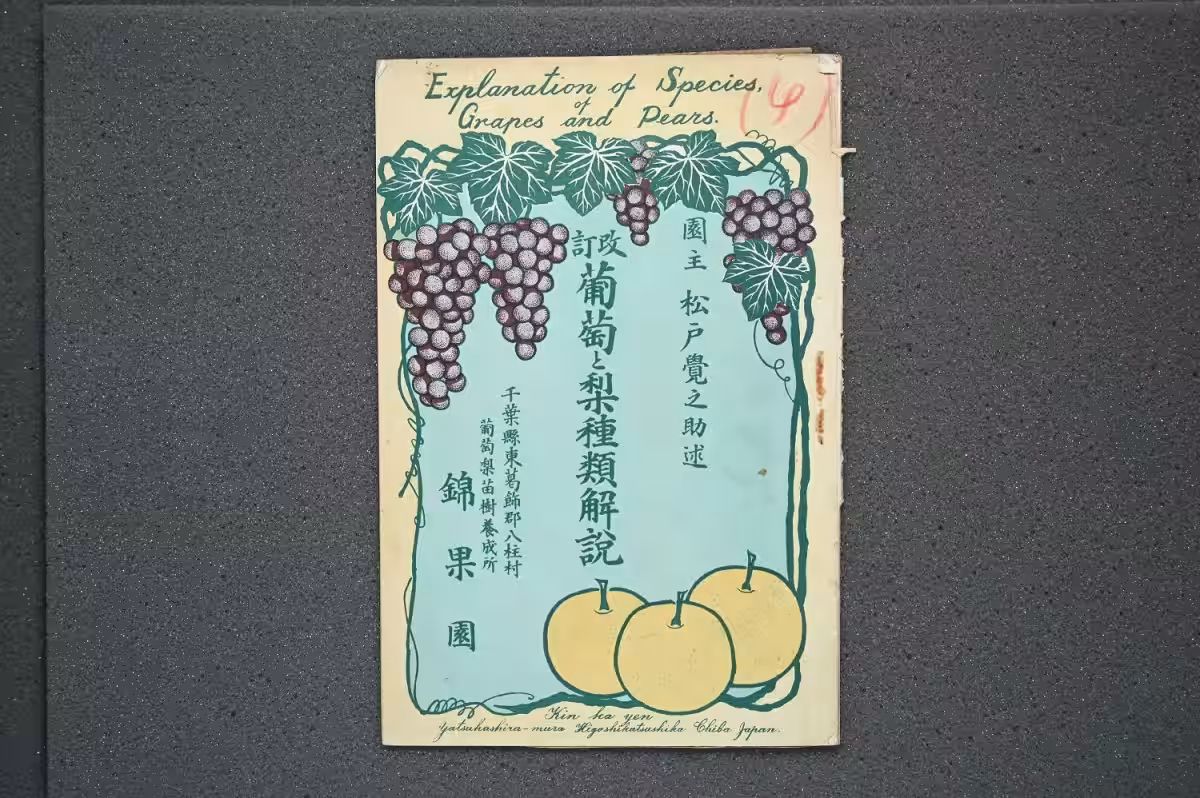 Explanation of Species,
of
Grapes and Pears.
(4)
園主 松戸覺之助述
改訂
葡萄と梨種類解說
千葉縣東葛飾郡八柱村
葡萄梨苗樹養成所
錦果園
Kin ka yen
Yatsuhashira-mura Higashikatsushika Chiba Japan.